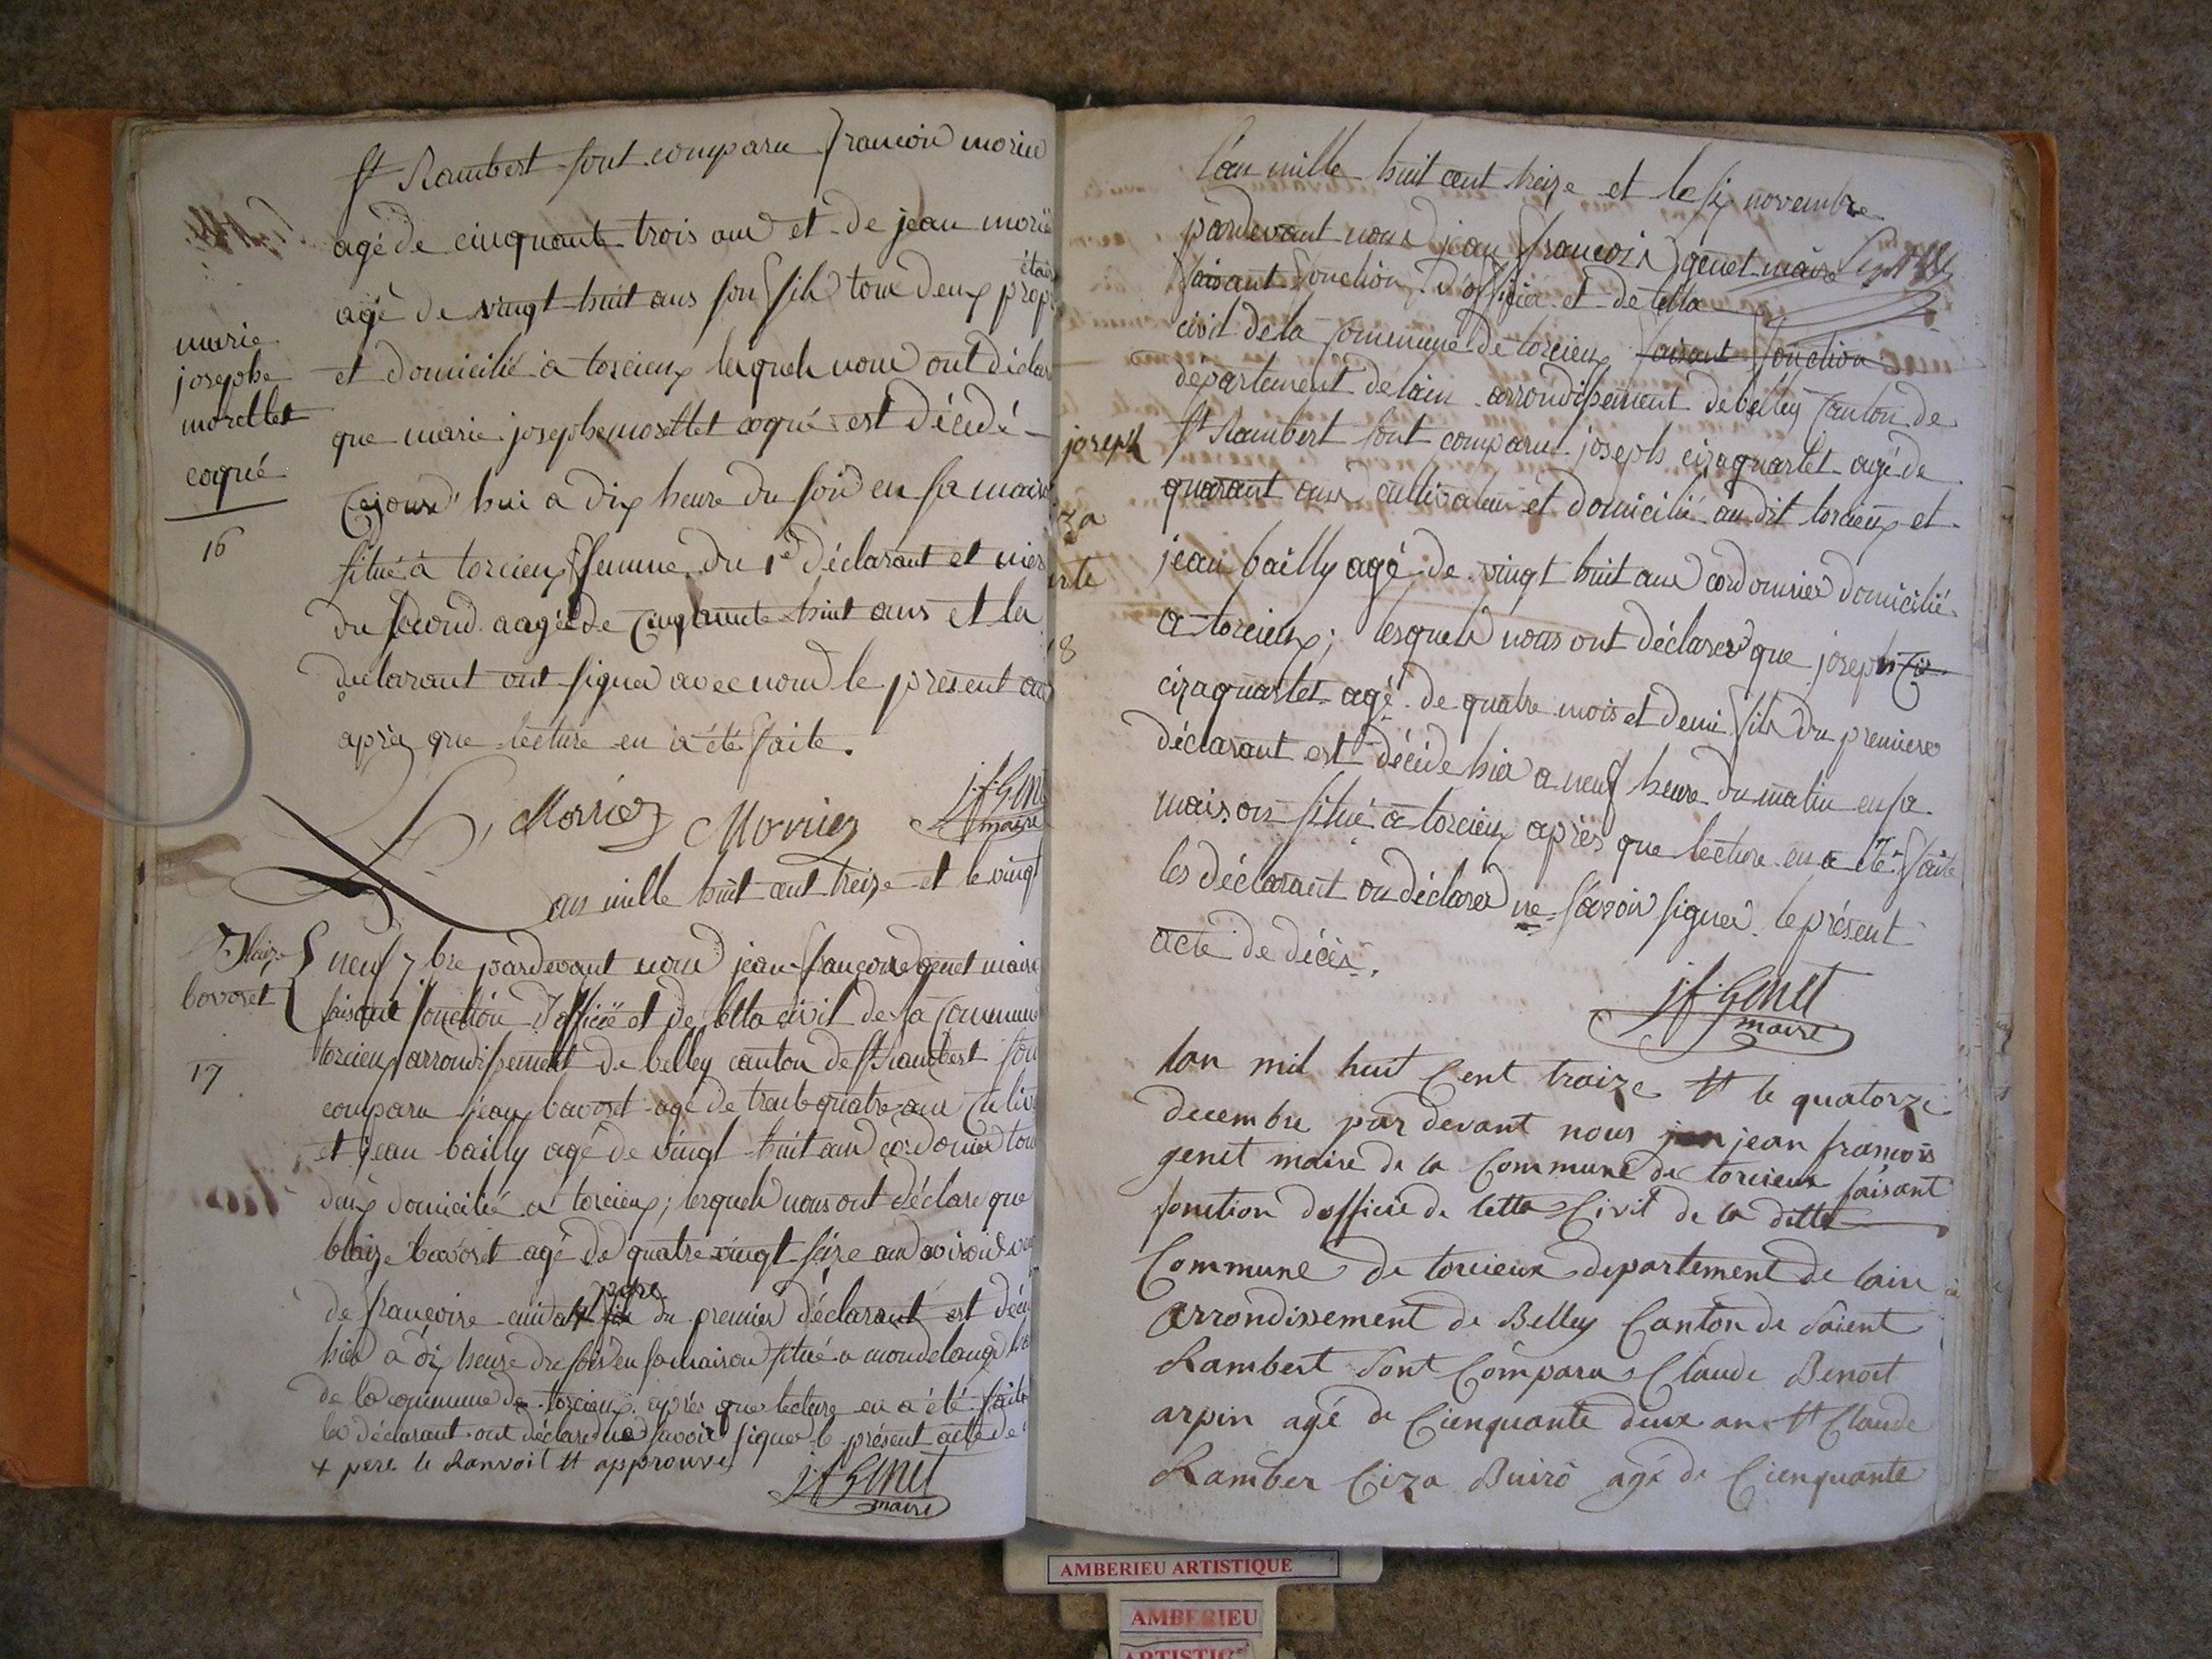 St Rambert sont comparu francoie morier
agé de cinquante trois ans et de jean morie
agé de vingt huit ans son fils tous deux propi
étair
et domicilié à torcieux lesquels nous ont déclar
que marie josephe morellet coqué est décédé
cejourd'hui a dix heure du soir en sa maiso
situé à torcieux femme du 1er déclarant et mer
du second aagée de cinquante huit ans et la
déclarant ont signer avec nous le présent ac
après que lecture en à été faite.
marie
josephe
morellet
coqué
16
Morriez Morriez
j f Genet
maire
an mille huit cent treize et le vingt
neuf 7bre pardevant nous jean francoise genet maire
faisant fonction d'officié et de letta civil de la commune
torcieux arrondissement de belley canton de St rambert son
comparu jean bavoset agé de trente quatre ans cultiv
et jean bailly agé de vingt huit ans cordonier tou
deux domicilié a torcieux; lesquels nous ont déclaré que
blaize bavoset agé de quatre vingt seize ans
de francoise du premier déclarant est décé
père
hier à dix heure du soir en sa maison situé a mondelange
de la commune de torcieux après que lecture en a été faite
les déclarant ont déclaré ne savoir signer le présent acte de
+ pere le Ranvoit et approuve
j f Genet
maire
blaize
bavoset
17
joseph
za
rte
18
l'an mille huit cent treize et le six novembre
pardevant nous jean francois genet maire
faisant fonction d'officier et de letta
civil de la commune de torcieux faisant fonction
departement de lain arrondissement de belley canton de
St Rambert sont comparu joseph cizaquartet agé de
quarant ans cultivateur et domicilié au dit torcieux et
jean bailly agé de vingt huit ans cordonnier domicilié
a torcieux; lesquels nous ont déclarer que joseph ciz
cizaquartet agé de quatre mois et demi fils du premiere
déclarant est décédé hier a neuf heure du matin en sa
maison situé à torcieux après que lecture en a été faite
les déclarant on déclarer ne savoir signer le présent
acte de décès.
j f Genet
maire
lan mil huit cent traize et le quatorze
decembre par devant nous jean francois
genet maire de la commune de torcieux faisant
fonction d'officié de letta civil de la ditte
Commune de torcieux departement de lain
arrondissement de Belley Canton de saient
Rambert sont comparu Claude Benoit
arpin agé de cienquante deux an et Claude
Ramber Ciza Buirô agé de cienquante
AMBERIEU ARTISTIQUE
AMBERIEU
ARTISTIQ